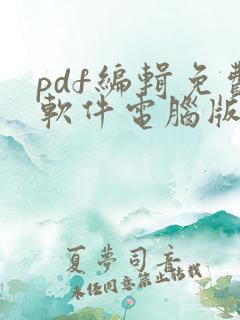 pdf編輯免費
軟件電腦版
夏夢司音
未任同意禁止轉載